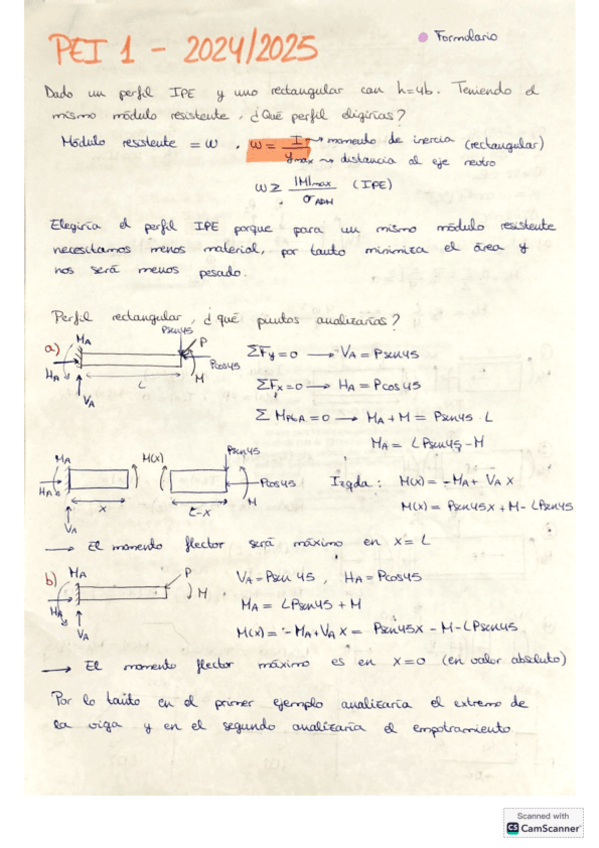 PEI 1 - 2024/2025
Formulario
Dado un perfil IPE y uno rectangular con h=4b. Teniendo el
mismo módulo resistente, ¿Qué perfil eligirías?
Módulo resistente = ω , ω = I / ymax
I → momento de inercia (rectangular)
ymax → distancia al eje neutro
ω ≥ |M|max / σADM (IPE)
Elegiría el perfil IPE porque para un mismo módulo resistente
necesitamos menos material, por tanto minimiza el área y
nos será menos pesado.
Perfil rectangular, ¿qué puntos analizarías?
a) MA HA VA L Psen45 P Pcos45 M
ΣFy=0 → VA = Psen45
ΣFx=0 → HA = Pcos45
Σ MPto.A=0 → MA + M = Psen45 · L
MA = LPsen45 - M
MA HA VA x M(x) Psen45 Pcos45 M L-x
Izqda: M(x) = -MA + VA x
M(x) = Psen45x + M - LPsen45
→ El momento flector será máximo en x = L
b) MA HA VA P M
VA = Psen 45 , HA = Pcos45
MA = LPsen45 + M
M(x) = -MA + VA x = Psen45x - M - LPsen45
→ El momento flector máximo es en x=0 (en valor absoluto)
Por lo tanto en el primer ejemplo analizaría el extremo de
la viga y en el segundo analizaría el empotramiento
Scanned with
CS CamScanner